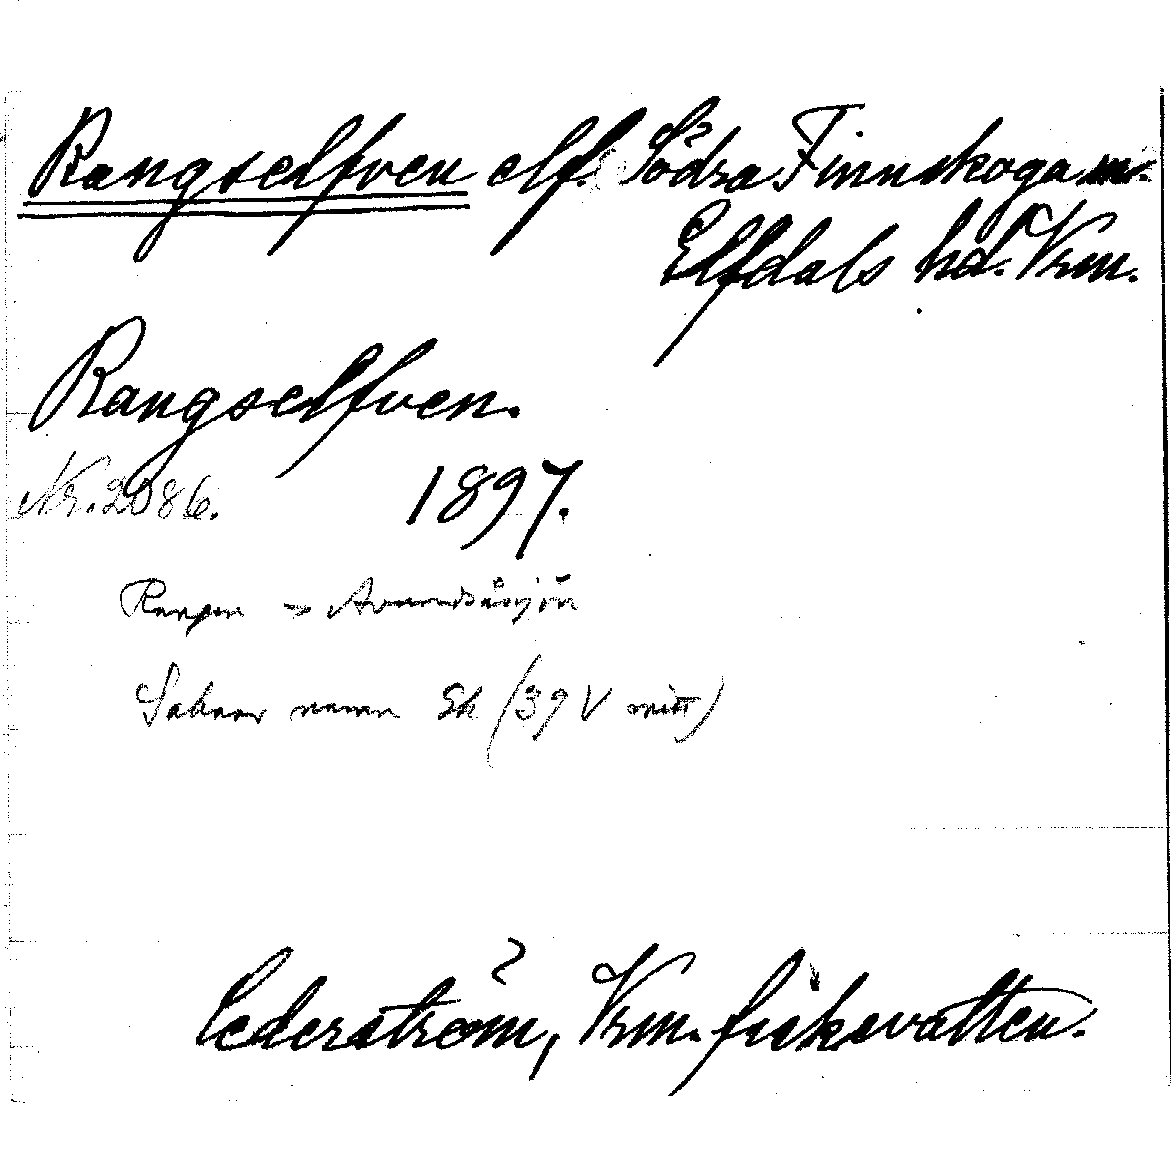 Rangselfven elf. Södra Finnskoga sn.
Elfdals hd. Vrm.
Rangselfven.
Nr. 2086. 1897.
Rangen → 
Saknar namn Ek (39 V mitt)
Cederström, Vrm. fiskevatten.